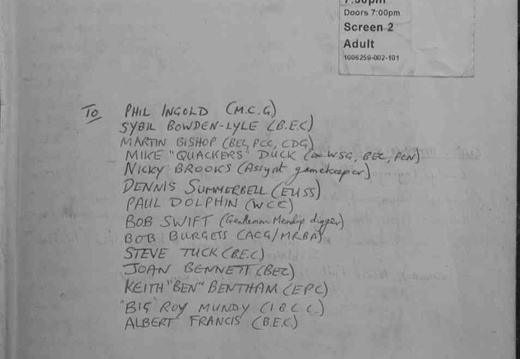 7:30pm
Doors 7:00pm
Screen 2
Adult
1006259-002-101
To PHIL INGOLD (M.C.G)
SYBIL BOWDEN-LYLE (B.E.C)
MARTIN BISHOP (BEC, PCC, CDG)
MIKE "QUACKERS" DUCK (WSG, BEC, PCN)
NICKY BROOKS (Assynt gamekeeper)
DENNIS SUMMERBELL (EUSS)
PAUL DOLPHIN (WCC)
BOB SWIFT (Gentleman Mendip digger)
BOB BURGESS (ACG/MRBA)
STEVE TUCK (B.E.C)
JOAN BENNETT (BEC)
KEITH "BEN" BENTHAM (EPC)
"BIG" ROY MUNDY (I.B.C.C.)
ALBERT FRANCIS (B.E.C)